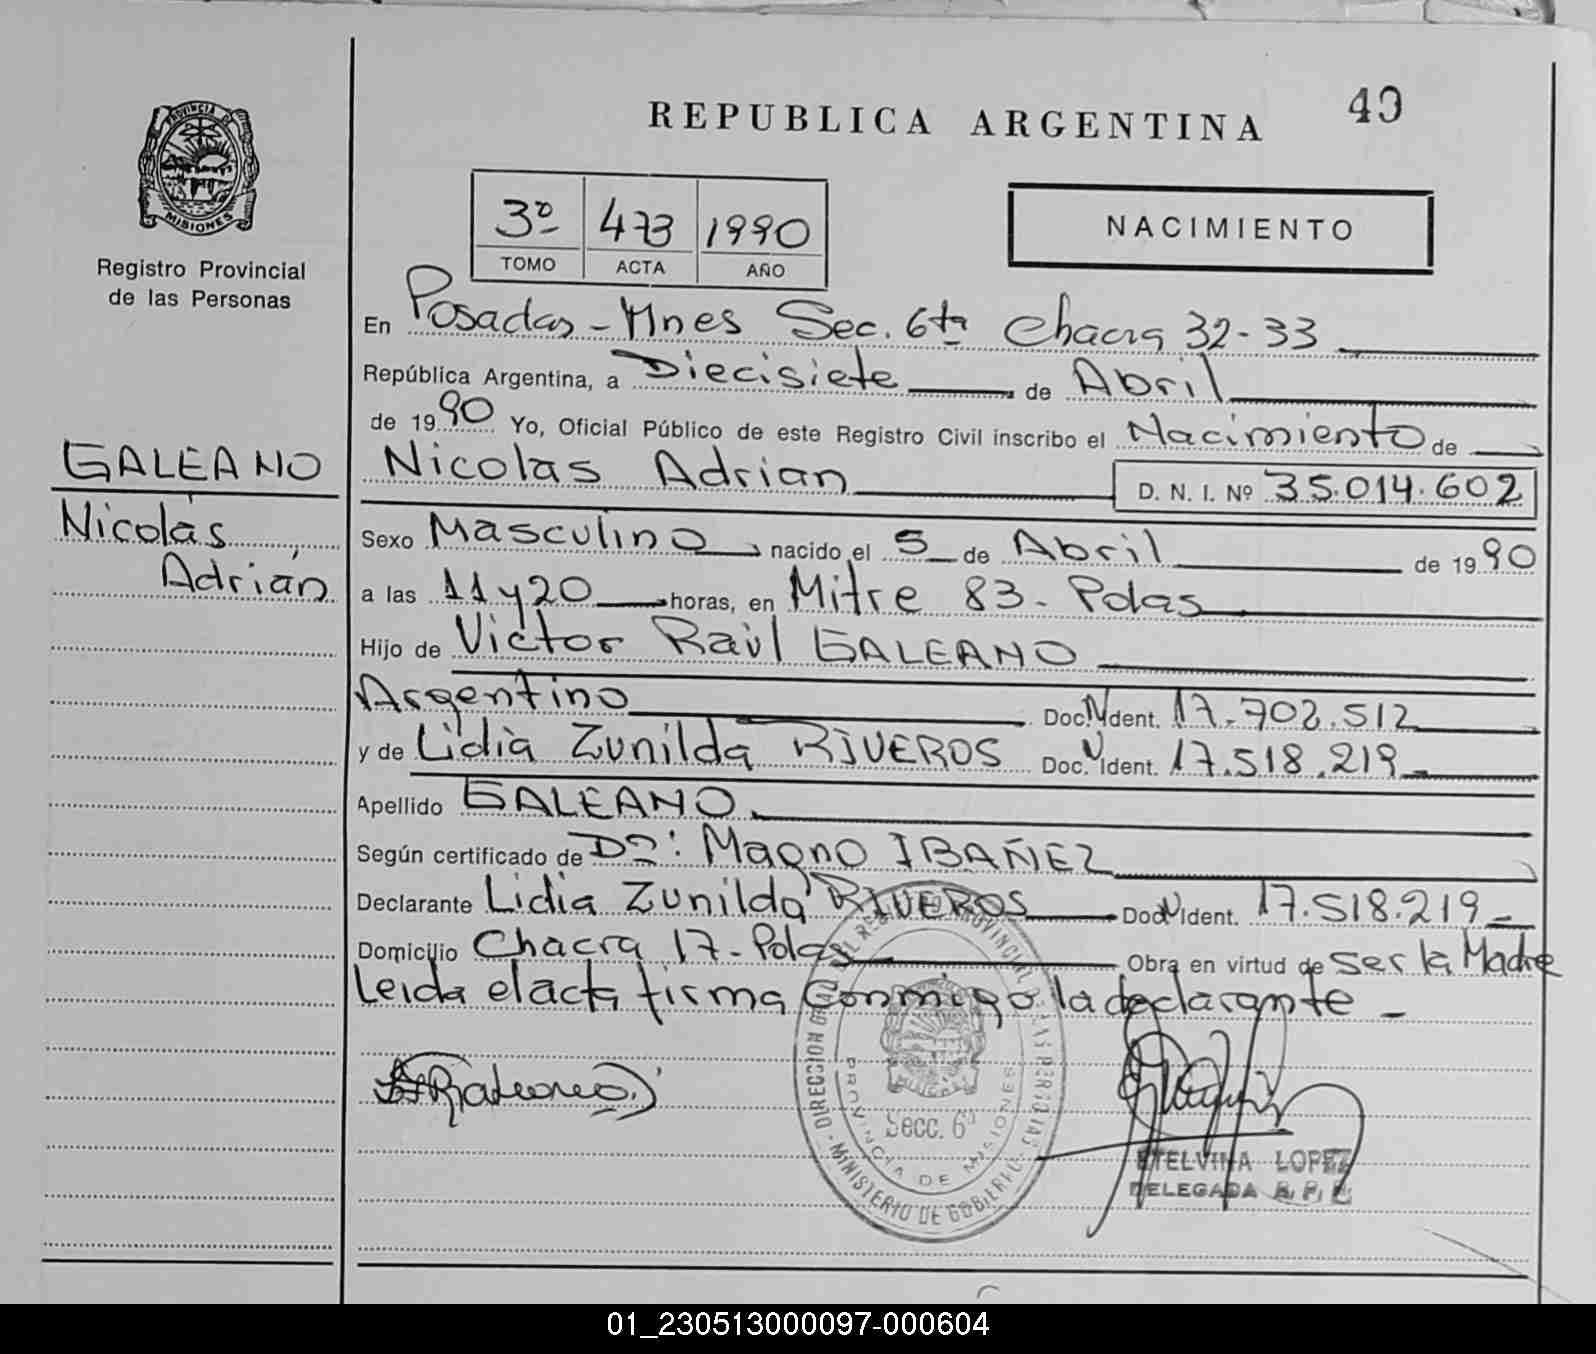 REPUBLICA ARGENTINA
49
PROVINCIA DE
MISIONES
Registro Provincial
de las Personas
3º 473 1990
TOMO ACTA AÑO
NACIMIENTO
En Posadas - Mnes Sec. 6ta Chacra 32-33
República Argentina, a Diecisiete de Abril
de 1990 Yo, Oficial Público de este Registro Civil inscribo el Nacimiento de
GALEANO
Nicolás
Adrián
Nicolas Adrian D. N. I. Nº 35.014.602
Sexo Masculino, nacido el 5 de Abril de 1990
a las 11 y 20 horas, en Mitre 83 - Pdas
Hijo de Victor Raúl GALEANO
Argentino Doc. N Ident. 17.702.512
y de Lidia Zunilda RIVEROS Doc. N Ident. 17.518.219
Apellido GALEANO
Según certificado de Dr: Magno IBAÑEZ
Declarante Lidia Zunilda RIVEROS Doc. N Ident. 17.518.219
Domicilio Chacra 17 - Pdas Obra en virtud de ser la Madre
Leida el acta firma conmigo la declarante -
DIRECCION GRAL. DEL REGISTRO PROVINCIAL DE LAS PERSONAS
MINISTERIO DE GOBIERNO
PROVINCIA DE MISIONES
Secc. 6ª
ETELVINA LOPEZ
DELEGADA R. P. P.
01_230513000097-000604